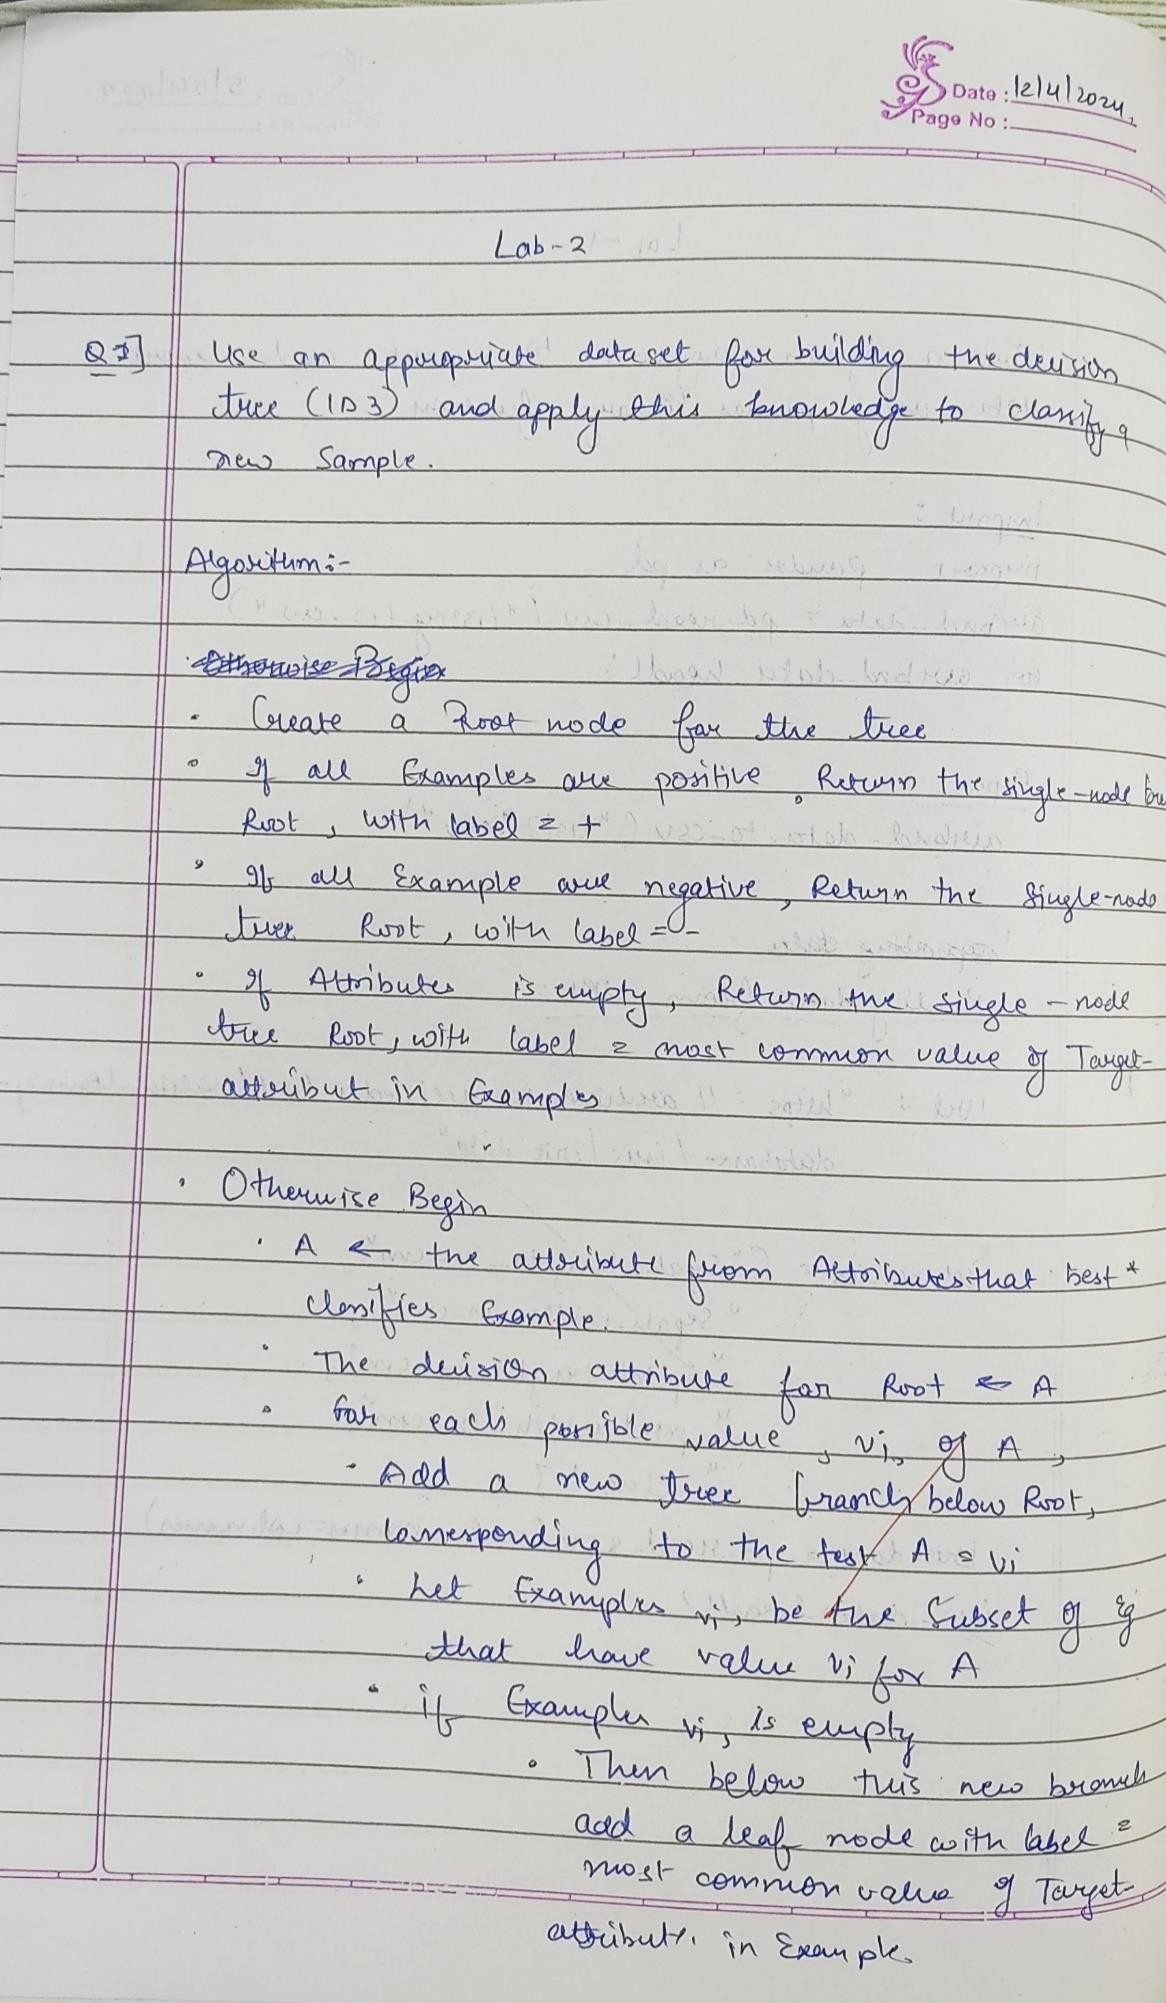 Date : 12/4/2024,
Page No :
Lab-2
Q1] Use an appropriate dataset for building the decision
tree (ID3) and apply this knowledge to classify a
new Sample.
Algorithm :-
Otherwise Begin
· Create a Root node for the tree
· If all Examples are positive, Return the single-node
Root, with label = +
· If all Example are negative, Return the Single-node
tree Root, with label = -
· If Attributes is empty, Return the single-node
tree Root, with label = most common value of Target-
attribut in Examples
· Otherwise Begin
· A ← the attribute from Attributes that best *
classifies Example.
· The decision attribute for Root ← A
· for each possible value, vi, of A,
· Add a new tree branch below Root,
corresponding to the test A = vi
· Let Examples vi, be the Subset of Eg
that have value vi for A
· if Examples vi, is empty
· Then below this new branch
add a leaf node with label =
most common value of Target-
attribute. in Example.